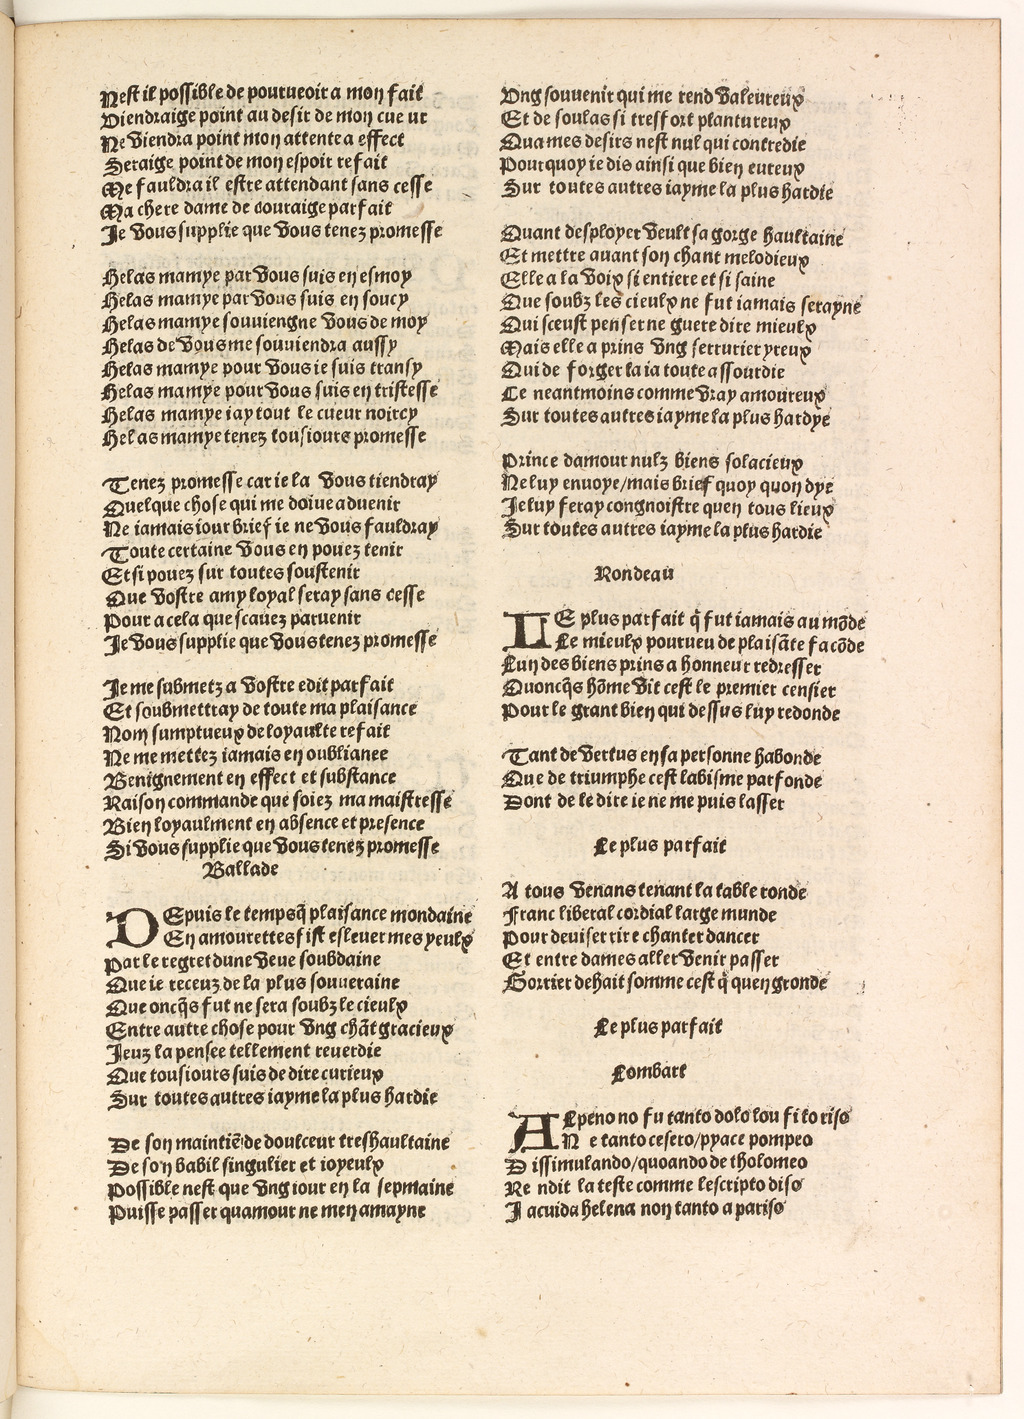 Nest il possible de pourueoir a mon fait
Viendraige point au desir de mon cueur
Ne viendra point mon attente a effect
Seraige point de mon espoir refait
Me fauldra il estre attendant sans cesse
Ma chere dame de couraige parfait
Je vous supplie que vous tenez promesse
Helas mamye par vous suis en esmoy
Helas mamye par vous suis en soucy
Helas mamye souuiengne vous de moy
Helas de vous me souuiendra aussy
Helas mamye pour vous ie suis transy
Helas mamye pour vous suis en tristesse
Helas mamye iay tout le cueur noircy
Helas mamye tenez tousiours promesse
Tenez promesse car ie la vous tiendray
Quelque chose qui me doiue aduenir
Ne iamais iour brief ie ne vous fauldray
Toute certaine vous en pouez tenir
Et si pouez sur toutes soustenir
Que vostre amy loyal seray sans cesse
Pour a cela que scauez paruenir
Je vous supplie que vous tenez promesse
Je me submetz a vostre edit parfait
Et soubmettray de toute ma plaisance
Nom sumptueux de loyaulte refait
Ne me mettez iamais en oubliance
Benignement en effect et substance
Raison commande que soiez ma maistresse
Bien loyaulment en absence et presence
Si vous supplie que vous tenez promesse
Ballade
DEpuis le temps q̄ plaisance mondaine
En amourettes fist esleuer mes yeulx
Par le regret dune veue soubdaine
Que ie receuz de la plus souueraine
Que oncq̄s fut ne sera soubz le cieulx
Entre autre chose pour vng chāt gracieux
Jeuz la pensee tellement reuerdie
Que tousiours suis de dire curieux
Sur toutes autres iayme la plus hardie
De son maintiē de doulceur treshaultaine
De son babil singulier et ioyeulx
Possible nest que vng iour en la sepmaine
Puisse passer quamour ne men amayne
Vng souuenir qui me rend valeureux
Et de soulas si tresfort plantureux
Qua mes desirs nest nul qui contredie
Pourquoy ie dis ainsi que bien eureux
Sur toutes autres iayme la plus hardie
Quant desployer veult sa gorge haultaine
Et mettre auant son chant melodieux
Elle a la voix si entiere et si saine
Que soubz les cieulx ne fut iamais serayne
Qui sceust penser ne guere dire mieulx
Mais elle a prins vng serrurier yreux
Qui de forger la ia toute assourdie
Ce neantmoins comme vray amoureux
Sur toutes autres iayme la plus hardye
Prince damour nulz biens solacieux
Ne luy enuoye/mais brief quoy quon dye
Je luy feray congnoistre quen tous lieux
Sur toutes autres iayme la plus hardie
Rondeau
LE plus parfait q̄ fut iamais au mōde
Le mieulx pourueu de plaisāte facōde
Lun des biens prins a honneur redresser
Quoncq̄s hōme vit cest le premier censier
Pour le grant bien qui dessus luy redonde
Tant de vertus en sa personne habonde
Que de triumphe cest labisme parfonde
Dont de le dire ie ne me puis lasser
Le plus parfait
A tous venans tenant la table ronde
Franc liberal cordial large munde
Pour deuiser rire chanter dancer
Et entre dames aller venir passer
Gorrier dehait somme cest q̄ quen gronde
Le plus parfait
Lombart
ALpeno no fu tanto dolo lou fi lo riso
N e tanto cesero/pyace pompeo
D issimulando/quoando de tholomeo
Re ndit la teste comme lescripto diso
J acuida helena non tanto a pariso